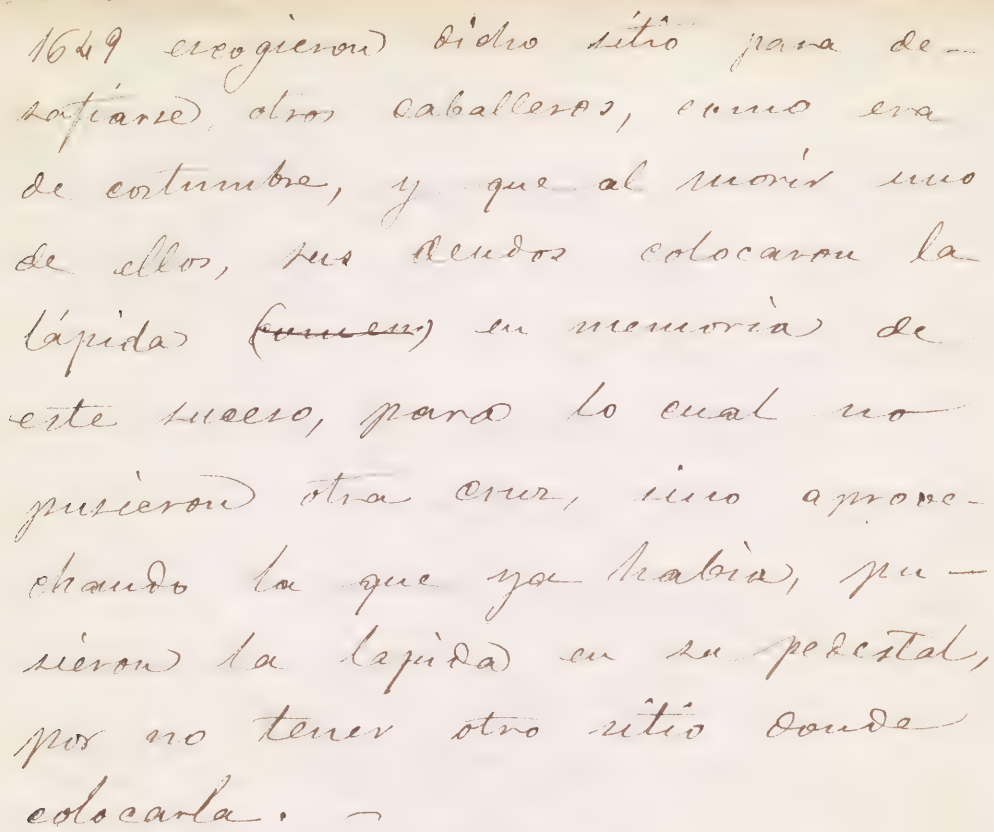 1649 escogieron dicho sitio para de-
safiarse, otros caballeros, como era
de costumbre, y que al morir uno
de ellos, sus deudos colocaron la
lápida en memoria de
este suceso, para lo cual no
pusieron otra cruz, sino aprove-
chando la que ya había, pu-
sieron la lapida en su pedestal,
por no tener otro sitio donde
colocarla. -